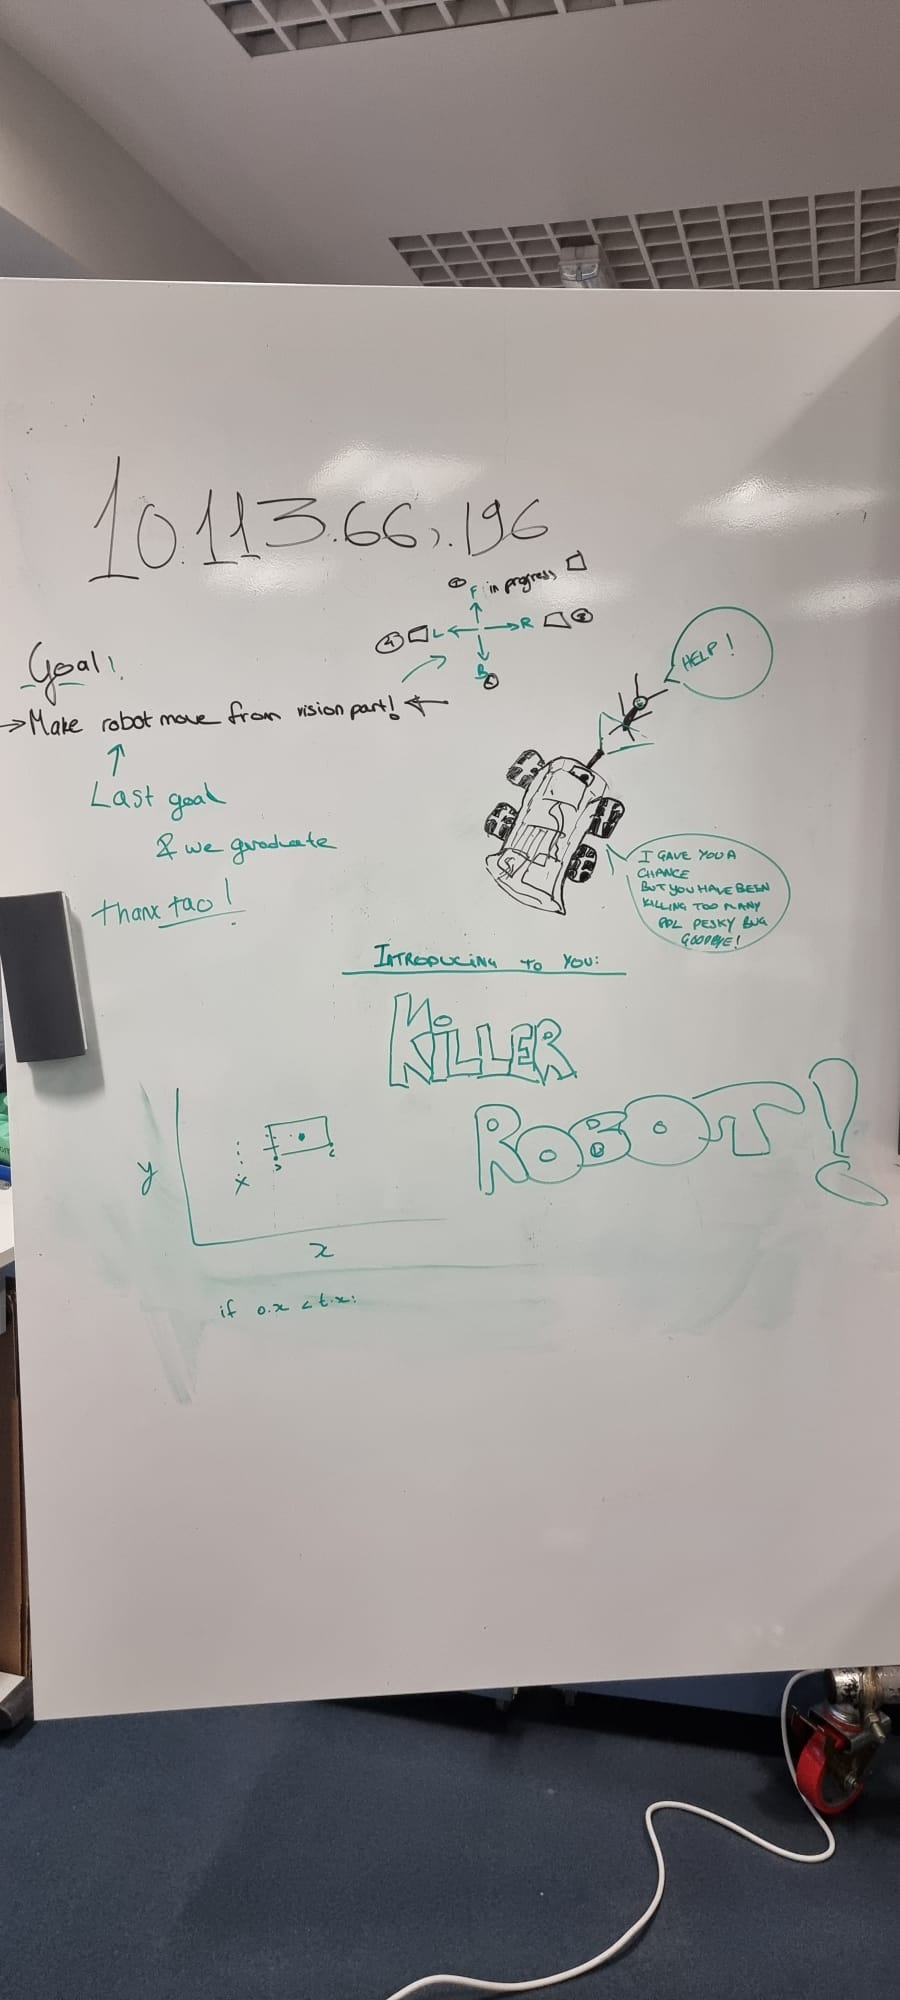 10.113.66.196
① F in progress
④ L R ③
B ②
Goal!
→ Make robot move from vision part! ←
HELP!
Last goal
& we graduate
thanx tao!
I GAVE YOU A
CHANCE
BUT YOU HAVE BEEN
KILLING TOO MANY
PPL PESKY BUG
GOODBYE!
INTRODUCING TO YOU:
KILLER
ROBOT!
y
x
x
if o.x < t.x: